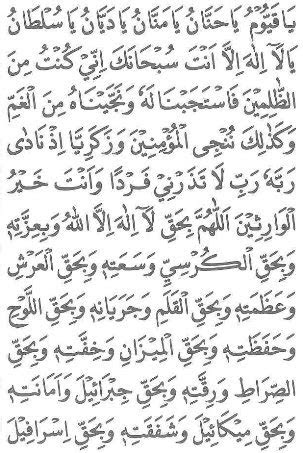 يَا قَيُّومُ يَا حَنَّانُ يَا مَنَّانُ يَا دَيَّانُ يَا سُلْطَانُ
يَا لَآ اِلٰهَ اِلَّا اَنْتَ سُبْحَانَكَ اِنِّي كُنْتُ مِنَ
الظَّالِمِينَ فَاسْتَجَبْنَا لَهُ وَنَجَّيْنَاهُ مِنَ الْغَمِّ
وَكَذٰلِكَ نُنْجِى الْمُؤْمِنِينَ وَزَكَرِيَّا اِذْ نَادٰى
رَبَّهُ رَبِّ لَا تَذَرْنِي فَرْدًا وَاَنْتَ خَيْرُ
الْوَارِثِينَ اَللّٰهُمَّ بِحَقِّ لَآ اِلٰهَ اِلَّا اللّٰهُ وَبِعِزَّتِهِ
وَبِحَقِّ الْكُرْسِيِّ وَسَعَتِهِ وَبِحَقِّ الْعَرْشِ
وَعَظَمَتِهِ وَبِحَقِّ الْقَلَمِ وَجَرَيَانِهِ وَبِحَقِّ اللَّوْحِ
وَحَفَظَتِهِ وَبِحَقِّ الْمِيزَانِ وَخِفَّتِهِ وَبِحَقِّ
الصِّرَاطِ وَرِقَّتِهِ وَبِحَقِّ جِبْرَائِيلَ وَاَمَانَتِهِ
وَبِحَقِّ مِيكَائِيلَ وَشَفَقَتِهِ وَبِحَقِّ اِسْرَافِيلَ